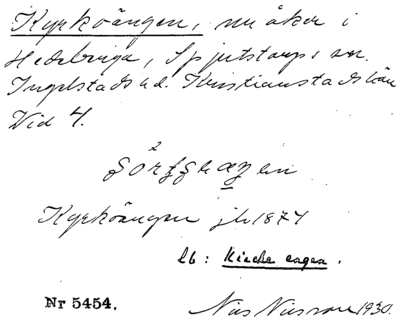 Kyrkoängen, nu åker i
Hedeberga, Spjutstorps sn.
Ingelstads hd. Kristianstads län
Vid 4.
Kyrkoängen jb 1874
Lb: Kirche engen.
Nr 5454.
Nils Nilsson 1930.